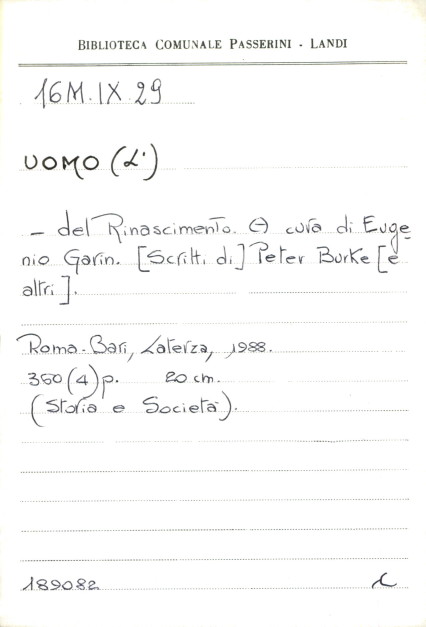 BIBLIOTECA COMUNALE PASSERINI - LANDI
16M.IX.29
UOMO (L')
- del Rinascimento. A cura di Euge-
nio Garin. [Scritti di] Peter Burke [e
altri].
Roma-Bari, Laterza, 1988.
350 (4) p. 20 cm.
(Storia e Società).
189082